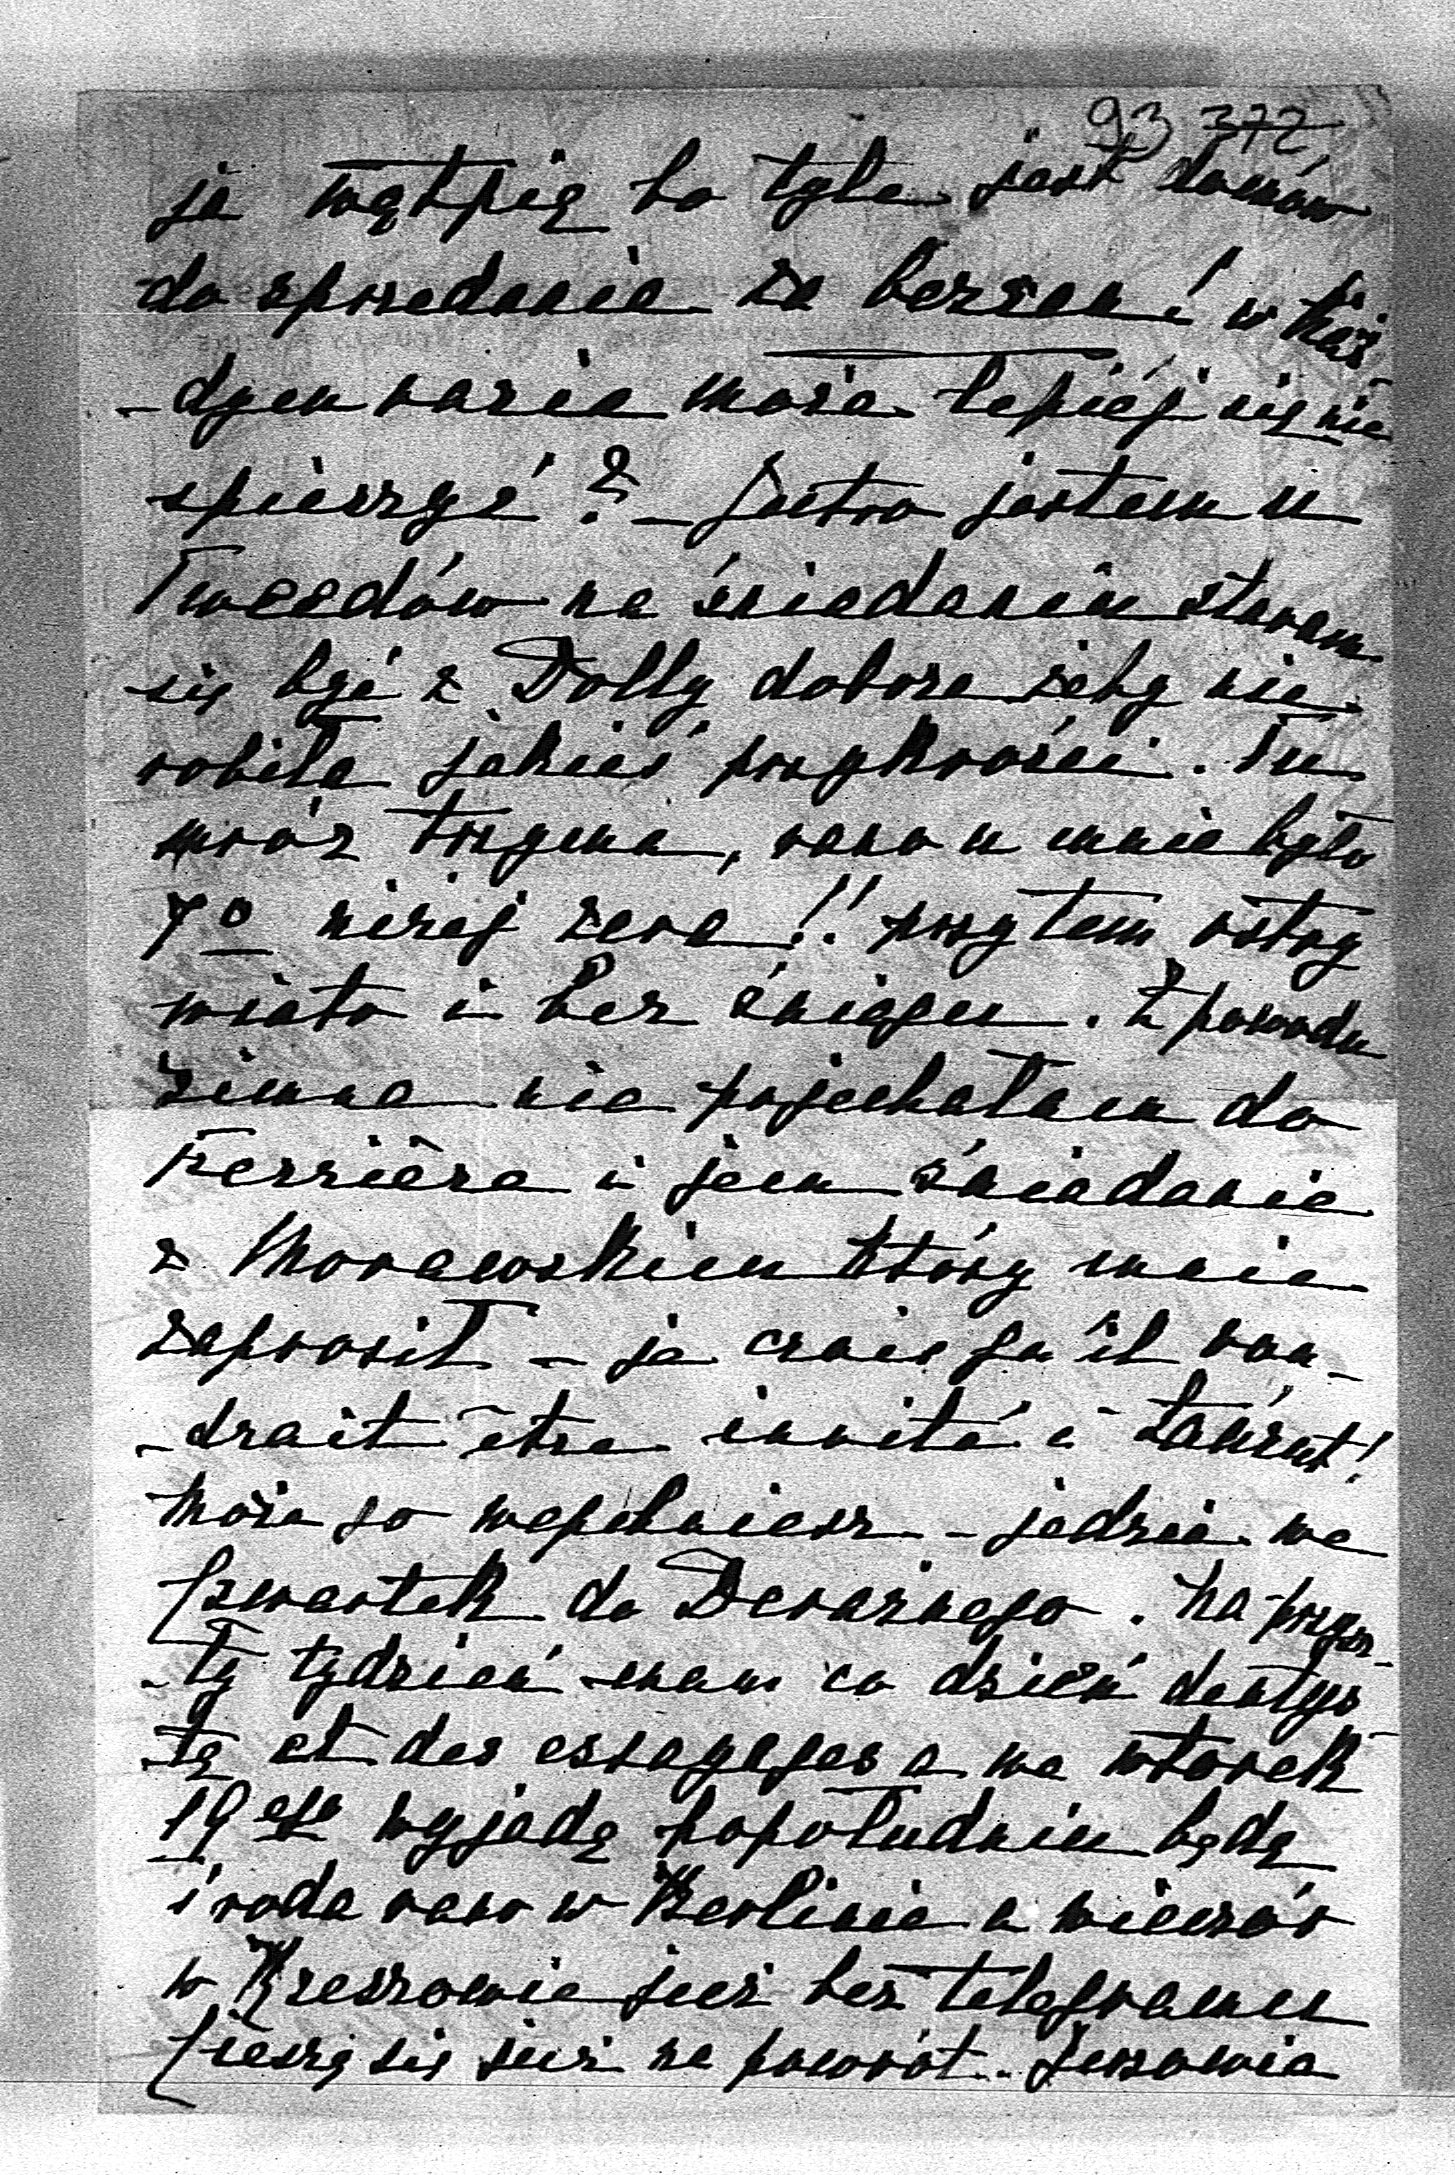 93 372
ja wątpię bo tyle jest domów
do sprzedania za bezcen! w każ
-dym razie może lepiéj się nie
spieszyć? – Jutro jestem u
Tweedów na śniadaniu staram
się być z Dolly dobrze żeby nie
robiła jakieś przykrości. Tu
mróz trzyma, rano u mnie było
7° niżej zera!! przytem ostry
wiatr i bez śniegu. Z powodu
zimna nie pojechałam do
Ferrière i jem śniadanie
z Morawskiem który mnie
zaprosił – je crois qu'il vou-
-drait être invité à Łańcut!
może go wspomniesz – jedzie we
Czwartek do Deraznego. Na przysz-
-ły tydzień mam co dzień dentys
-tę et des essayages a we wtorek
19go wyjadę popołudniu będę
środa rano w Berlinie a wieczór
w Rzeszowie już bez telegramu
Cieszę się już na powrót.